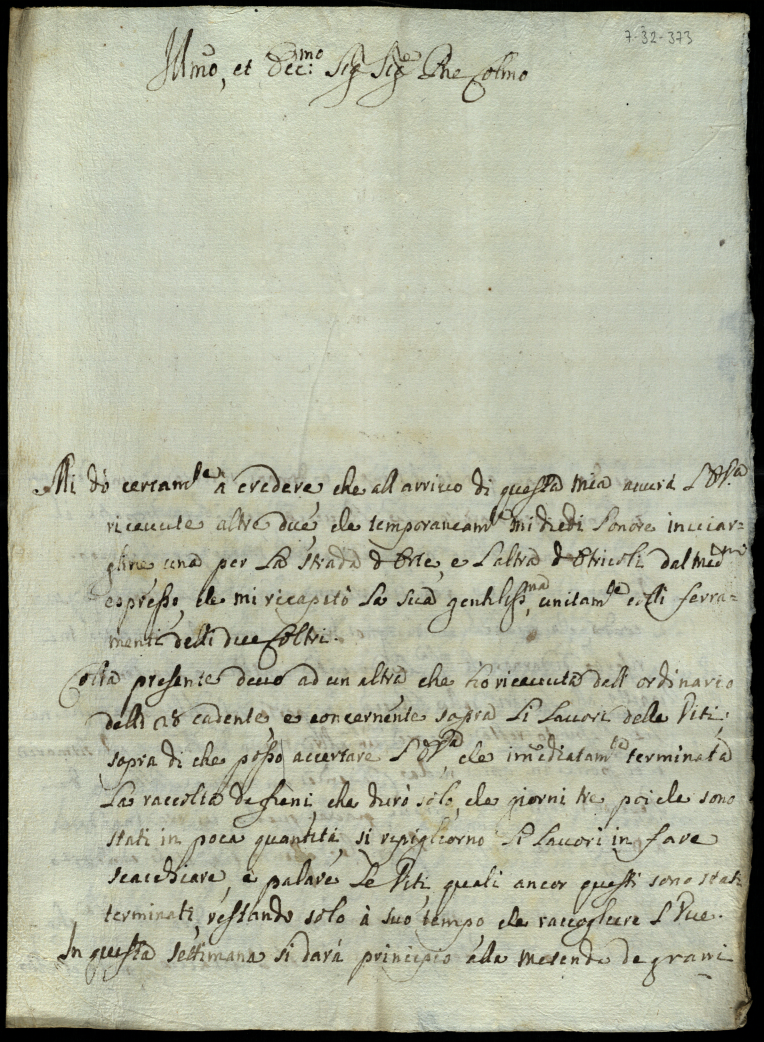 7-32-373
Illmo, et Sig Sig Pne Colmo
Mi dò certamte à credere che all arrivo di questa mia averà
riceuute altre due, che temporaneamte mi diedi l'onore inuiar=
gliene una per La strada d'Orte, e L'altra d'Otricoli dal medmo
espresso, che mi ricapitò La sua gentilissma, unitamte colli ferra=
menti delli due Coltri.
Colla presente deuo ad un altra che hò riceuuta dell ordinario
delli 28 cadente, e concernente sopra Li Lauori delle Viti,
sopra di che posso accertare che imediatamte terminata
La raccolta de fieni, che durò solo, che giorni tre poiche sono
stati in poca quantità, si repigliorno Li Lauori in fare
scacchiare, e palare Le Viti quali ancor questi sono stati
terminati, restando solo à suo tempo, che raccogliere L'Vue.
In questa settimana si darà principio alla mesenda de grani